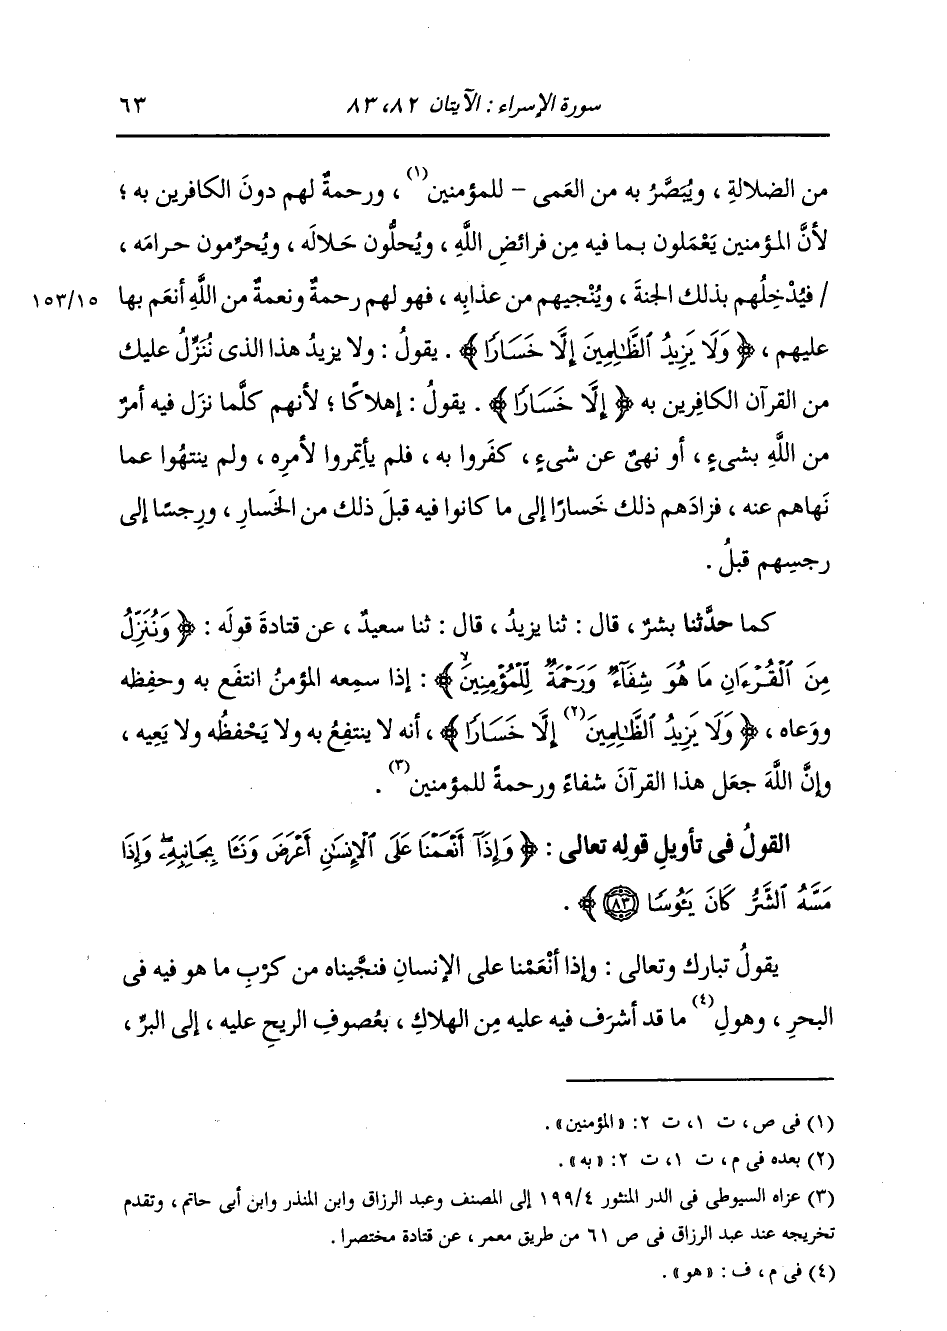 سورة الإسراء : الآيتان ٨٢، ٨٣ ٦٣
من الضلالةِ ، ويُبَصَّرُ به من العَمى – للمؤمنين(١) ، ورحمةٌ لهم دونَ الكافرين به ؛
لأنَّ المؤمنين يَعْمَلون بما فيه مِن فرائضِ اللَّهِ ، ويُحلُّون حَلالَه ، ويُحرِّمون حرامَه ،
١٥٣/١٥ / فيُدْخِلُهم بذلك الجنةَ ، ويُنْجيهم من عذابِه ، فهو لهم رحمةٌ ونعمةٌ من اللَّهِ أنعَم بها
عليهم ، ﴿ وَلَا يَزِيدُ ٱلظَّٰلِمِينَ إِلَّا خَسَارًا ﴾ . يقولُ : ولا يزيدُ هذا الذى نُنَزِّلُ عليك
من القرآن الكافِرين به ﴿ إِلَّا خَسَارًا ﴾ . يقولُ : إهلاكًا ؛ لأنهم كلَّما نزَل فيه أمرٌ
من اللَّهِ بشىءٍ ، أو نهىٌ عن شىءٍ ، كفَروا به ، فلم يأتِمروا لأمرِه ، ولم ينتهُوا عما
نَهاهم عنه ، فزادَهم ذلك خَسارًا إلى ما كانوا فيه قبلَ ذلك من الخَسارِ ، ورِجسًا إلى
رجسِهم قبلُ .
كما حدَّثنا بشرٌ ، قال : ثنا يزيدُ ، قال : ثنا سعيدٌ ، عن قتادةَ قولَه : ﴿ وَنُنَزِّلُ
مِنَ ٱلْقُرْءَانِ مَا هُوَ شِفَآءٌ وَرَحْمَةٌ لِّلْمُؤْمِنِينَۙ ﴾ : إذا سمِعه المؤمنُ انتفَع به وحفِظه
ووَعاه ، ﴿ وَلَا يَزِيدُ ٱلظَّٰلِمِينَ(٢) إِلَّا خَسَارًا ﴾ ، أنه لا ينتفِعُ به ولا يَحْفظُه ولا يَعِيه ،
وإنَّ اللَّهَ جعَل هذا القرآنَ شفاءً ورحمةً للمؤمنين(٣) .
القولُ فى تأويلِ قولِه تعالى : ﴿ وَإِذَآ أَنْعَمْنَا عَلَى ٱلْإِنسَٰنِ أَعْرَضَ وَنَـَٔا بِجَانِبِهِۦۖ وَإِذَا
مَسَّهُ ٱلشَّرُّ كَانَ يَـُٔوسًا ٨٣ ﴾ .
يقولُ تبارك وتعالى : وإذا أنْعَمْنا على الإنسانِ فنجَّيناه من كرْبِ ما هو فيه فى
البحرِ ، وهولِ(٤) ما قد أشرَف فيه عليه مِن الهلاكِ ، بعُصوفِ الريحِ عليه ، إلى البرِّ ،
(١) فى ص ، ت ١، ت ٢: «المؤمنين» .
(٢) بعده فى م ، ت ١، ت ٢: «به» .
(٣) عزاه السيوطى فى الدر المنثور ١٩٩/٤ إلى المصنف وعبد الرزاق وابن المنذر وابن أبى حاتم ، وتقدم
تخريجه عند عبد الرزاق فى ص ٦١ من طريق معمر ، عن قتادة مختصرا .
(٤) فى م ، ف : «هو» .